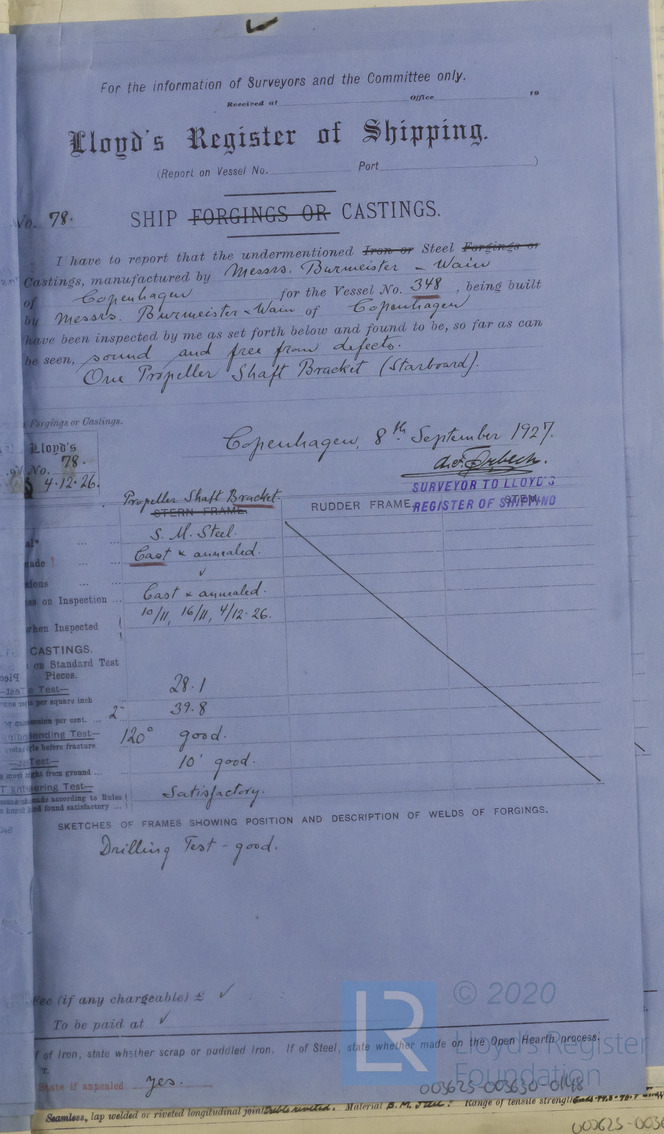 For the information of Surveyors and the Committee only.
Received at Office 19
Lloyd's Register of Shipping.
(Report on Vessel No. Port )
No. 78.
SHIP FORGINGS OR CASTINGS.
I have to report that the undermentioned Iron or Steel Forgings or
Castings, manufactured by Messrs. Burmeister & Wain
of Copenhagen for the Vessel No. 348, being built
by Messrs. Burmeister & Wain of Copenhagen
have been inspected by me as set forth below and found to be, so far as can
be seen, sound and free from defects.
One Propeller Shaft Bracket (Starboard).
Forgings or Castings.
Copenhagen, 8th September 1927.
Lloyd's
No. 78.
4.12.26.
SURVEYOR TO LLOYD'S
REGISTER OF SHIPPING
Propeller Shaft Bracket
STERN FRAME. RUDDER FRAME. STEM.
S. M. Steel.
Cast & annealed.
on Inspection ... Cast & annealed.
when Inspected 10/11, 16/11, 4/12-26.
CASTINGS.
on Standard Test
Pieces.
Test—
per square inch 28.1
per cent. ... 2" 39.8
Bending Test— 120° good.
before fracture
Test— 10' good.
from ground ...
Test— Satisfactory.
according to Rules
found satisfactory ...
SKETCHES OF FRAMES SHOWING POSITION AND DESCRIPTION OF WELDS OF FORGINGS.
Drilling Test - good.
Fee (if any chargeable) £ ✓
To be paid at ✓
If of Iron, state whether scrap or puddled iron. If of Steel, state whether made on the Open Hearth process.
State if annealed yes.
© 2020
LR
Lloyd's Register
Foundation
003625-003630-0148
Seamless, lap welded or riveted longitudinal joint Material S. M. Steel. Range of tensile strength